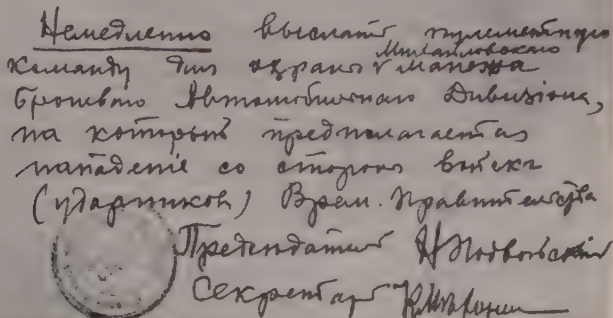 Немедленно выслать пулеметную
Михайловского
команду для охраны манежа
броневого Автомобильнаго Дивизiона,
на который предполагается
нападенiе со стороны войскъ
(ударников) Врем. Правительства
Председатель Н Подвойский
Секретарь